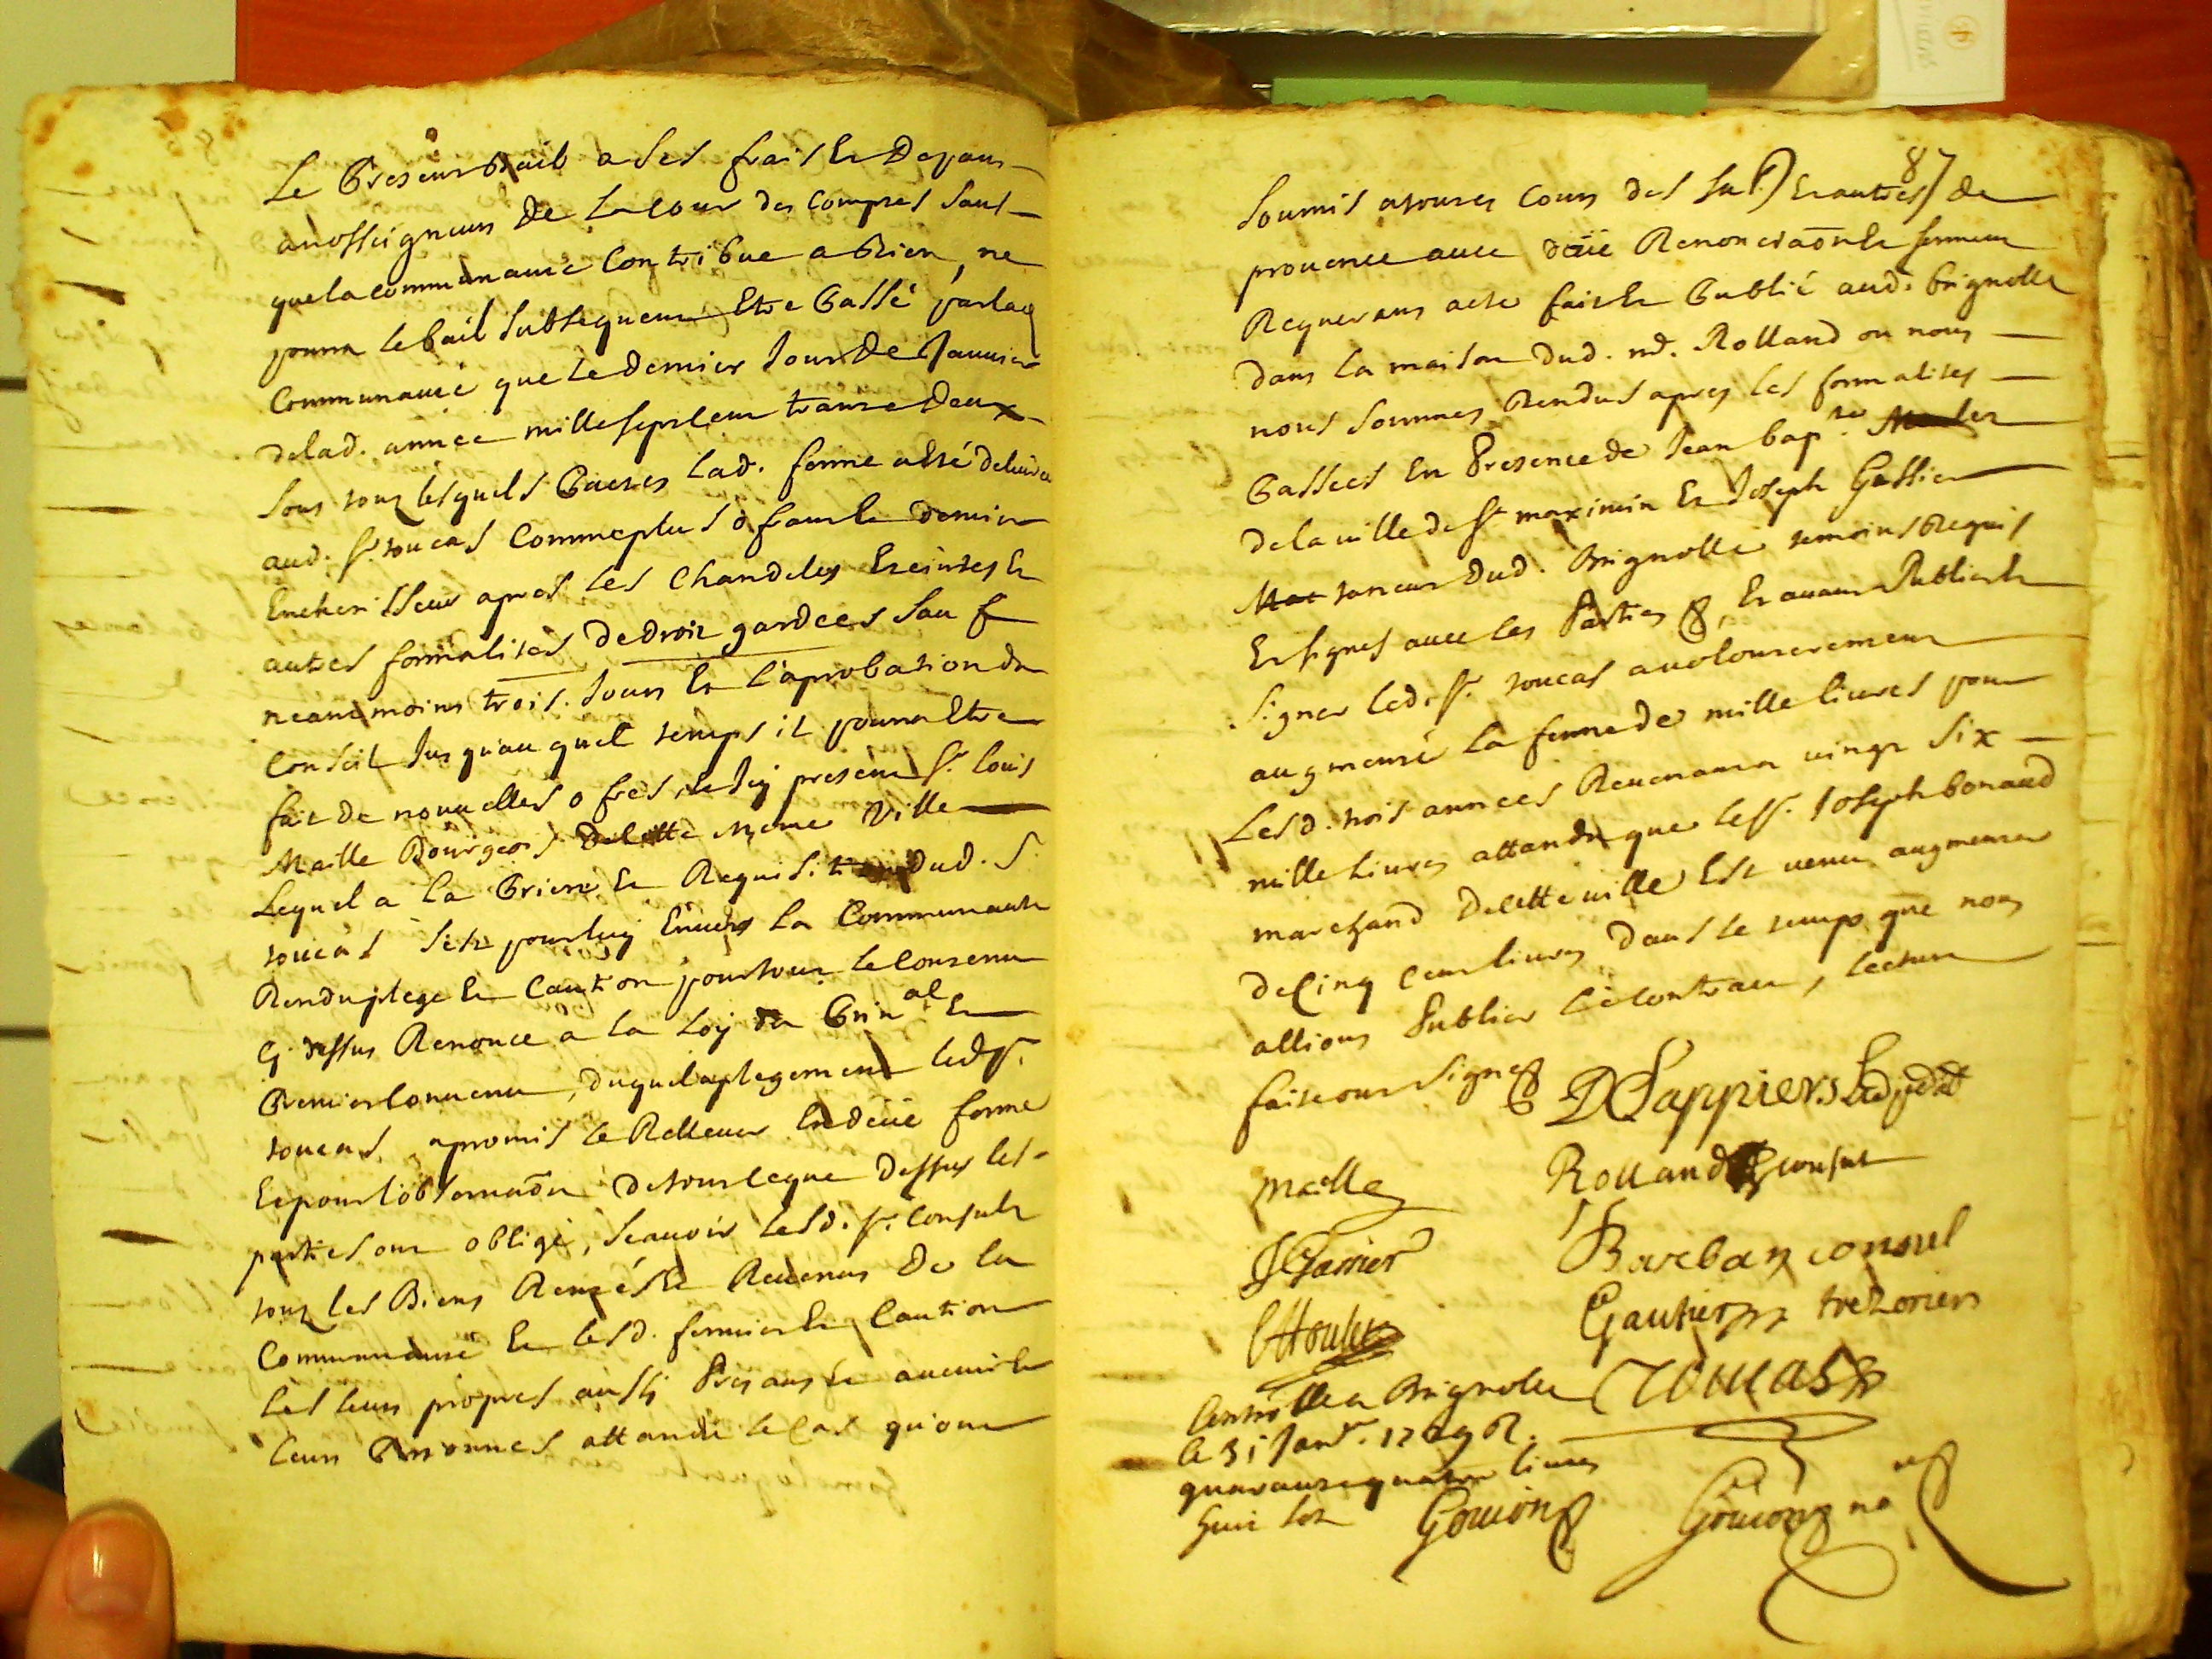 Le presant bail a ses frais et depans
a nosseigneurs de la cour des comptes sans
que la communauté contribue a rien, ne
pourra le bail subsequent etre passé par lad
communauté que le dernier jour de janvier
de lad. année mille sept cent trante deux
sous tous lesquels pactes lad. ferme a été delivrée
aud. sr. toucas comme plus ofrant et dernier
encherisseur apres les chandeles eteintes et
autres formalités de droit gardées sauf
neantmoins trois jours et l'aprobation du
conseil jusqu'au quel temps il pourra etre
fait de nouvelles ofres, et icy present sr. louis
Maille Bourgeois de cette meme ville
Lequel a la priere et requisition dud. s.
toucas s'est pour luy envers la communauté
Rendu plege et caution pour tout le contenu
cy dessus Renonce a la loy du prin.al et
premier convenu, duquel aplegement led. sr.
toucas a promis le Rellever en deüe forme
et pour l'observaõn de tout ce que dessus les
parties ont obligé, scauoir lesd. srs. consuls
tous les Biens Rentes et Revenus de la
communauté et lesd. fermier et caution
les leurs propres aussi presans et avenir et
leurs personnes attandu le cas qu'ont
87
soumis a toutes cours des sub.) et autres de
provence avec deüe Renonciaõn et serment
Requerans acte fait et publié aud. Brignolle
dans la maison dud. me. Rolland ou nous
nous sommes Rendus apres les formalités
passées en presence de Jean bap.te
de la ville de st maximin et Joseph Gassier
taneur dud. Brignolle temoins requis
et signes avec les parties, et avant publier et
signer led. sr. toucas a volontairement
augmenté la ferme de mille livres pour
Lesd. trois années Revenant a vingt six
mille livres attandu que le sr. Joseph bonaud
marchand de cette ville est venu augmenter
de cinq cent livres dans le temps que nous
allions publier le contract, lecture
faite ont signé
Rolland consul
maille
Barban consul
J Garrier
Gautier trezorier
toucas
Controllé a Brignolle
le 31 janvr.
quarante quatre livres
huit sols Gouion
Gouion no.re